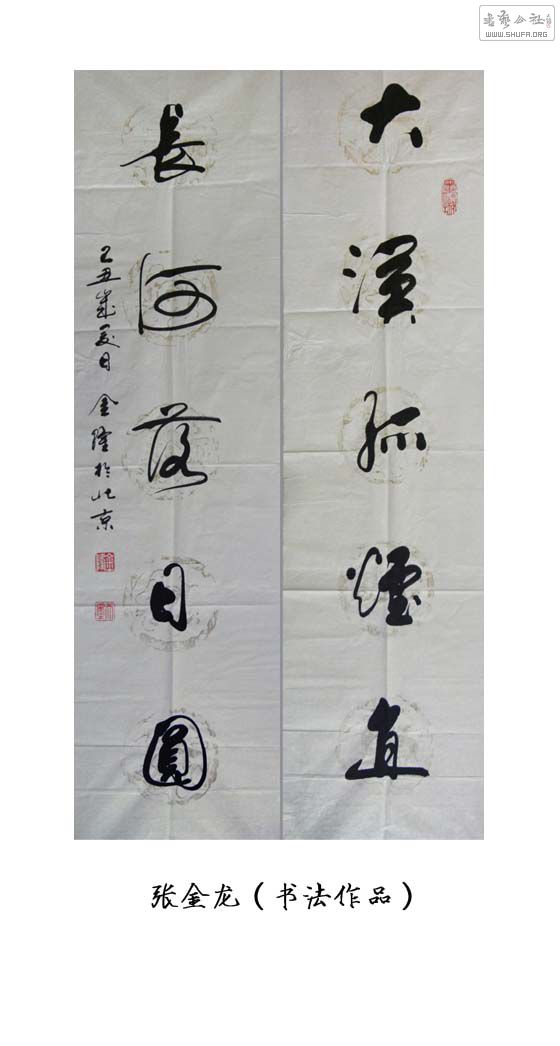 书艺公社
WWW.SHUFA.ORG
大漠孤煙直
長河落日圓
己丑歲夏日 金隆於北京
张金龙（书法作品）